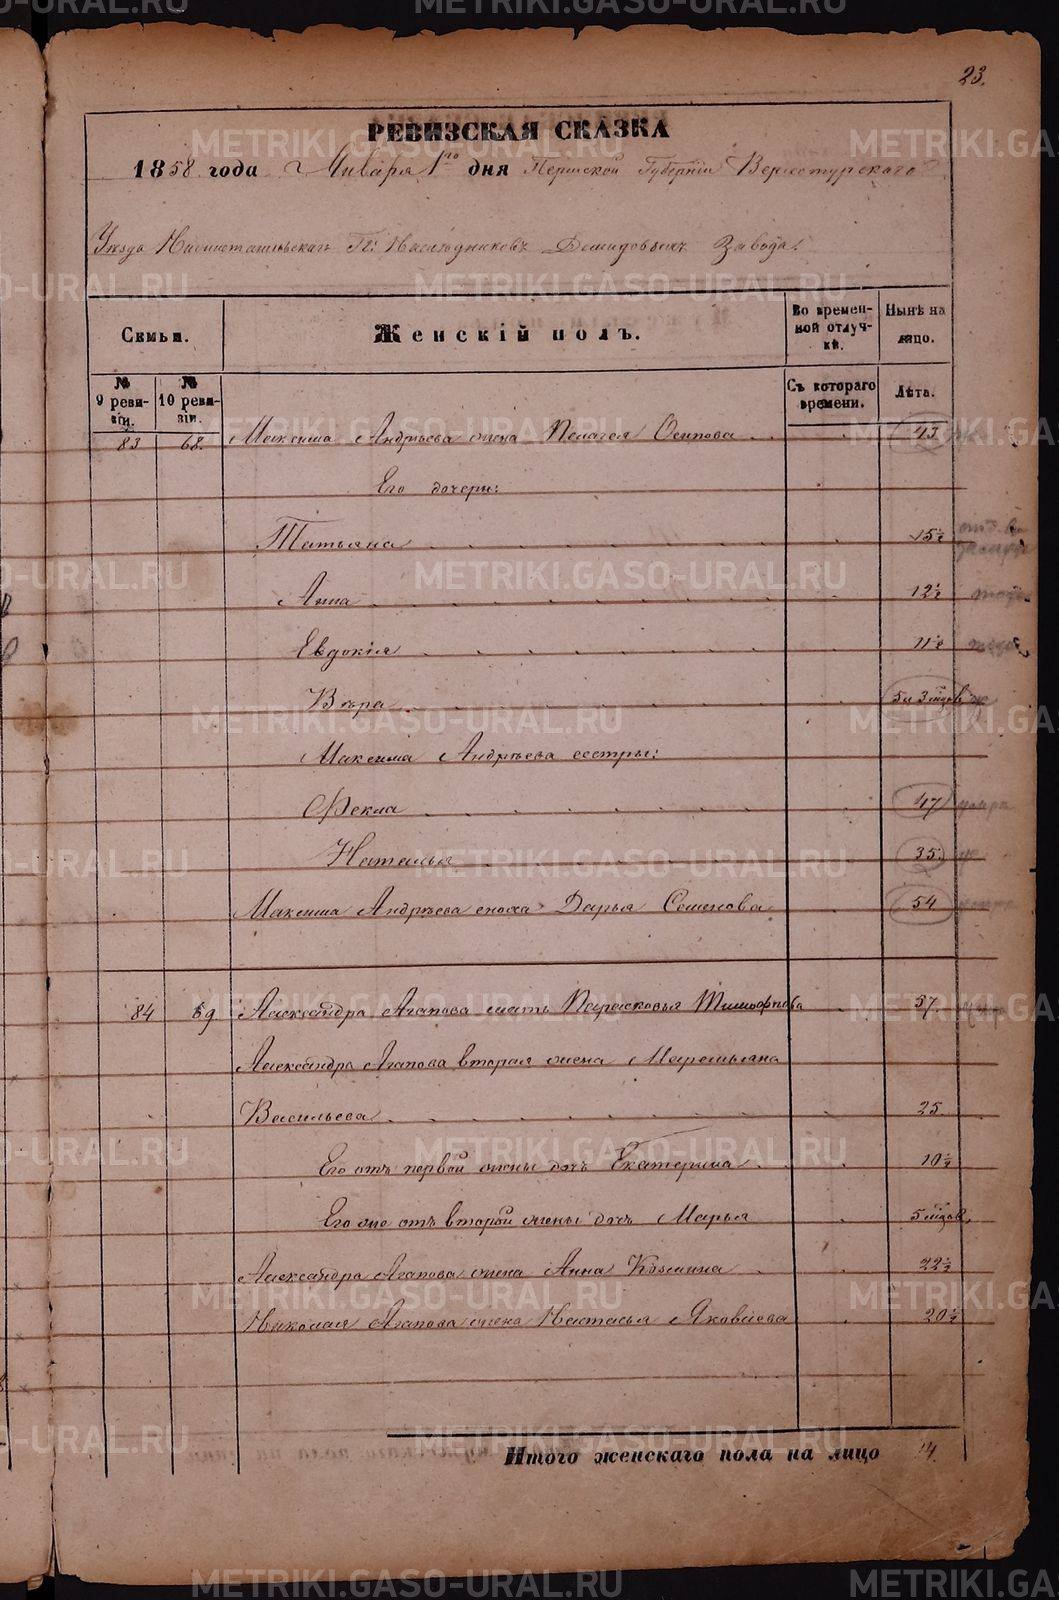 23.
РЕВИЗСКАЯ СКАЗКА
1858 года Января 1го дня Пермской Губернiи Верхотурскаго
Уѣзда Нижнетагильскаго Гг: Наслѣдниковъ Демидовыхъ Завода.
Семьи.
Женскiй полъ.
Во временной отлучкѣ.
Нынѣ на лицо.
№ 9 ревизiи.
№ 10 ревизiи.
Съ котораго времени.
Лѣта.
83 68. Максима Андрѣева жена Пелагея Осипова 43
Его дочери:
Татьяна 15½
Анна 12½
Евдокiя 11½
Вѣра 5 и 3 мѣсяцов
Максима Андрѣева сестры:
Фекла 47
Наталья 35.
Максима Андрѣева сноха Дарья Семенова 54
84 69 Александра Агапова мать Парасковья Тимофѣева 57.
Александра Агапова вторая жена Маремьяна
Васильева 25
Его отъ первой жены дочь Екатерина 10½
Его же отъ второй жены дочь Марья 5 мѣсяцов
Александра Агапова жена Анна Козмина 22½
Николая Агапова жена Настасья Яковлева 20½
Итого женскаго пола на лицо 14.
METRIKI.GASO-URAL.RU